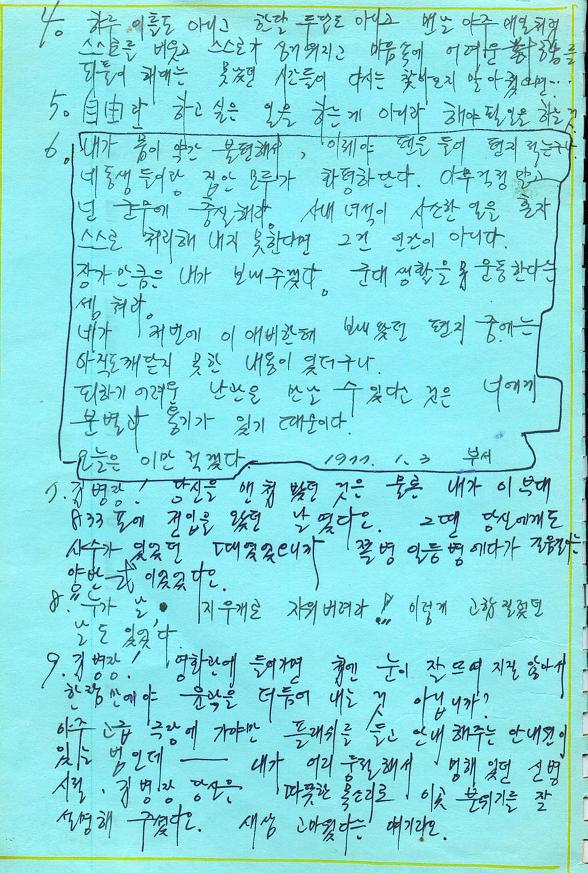 4. 하루 이틀도 아니고 한달 두달도 아니고 맨날 아주 매일처럼
스스로를 버릇고 스스로가 싱거워지고 마음속에 어려운
되풀이 해대는 못났던 시간들이 다시는 찾아오지 말아 줬으면...
5. 自由란 하고 싶은 일을 하는게 아니라 해야 될 일을 하는 것
6. 내가 몸이 약간 불편해서, 이제야 펜을 들어 편지 적는구나
네 동생들이랑 집안 모두가 화평하단다. 아무 걱정 말고
넌 군무에 충실해라. 사내 녀석이 사소한 일을 혼자
스스로 처리해 내지 못한다면 그건 인간이 아니다.
장가 안 보내주겠다. 군대 생활을 몸 운동한다는
셈 쳐라.
네가 저번에 이 애비한테 보내 왔던 편지 중에는
아직도 깨닫지 못한 내용이 있더구나.
피하기 어려운 난관을 만날 수 있다는 것은 너에게
분별과 용기가 있기 때문이다.
오늘은 이만 적겠다 1977. 1. 3 부서
7. 김병장! 당신을 맨 첨 봤던 것은 물론 내가 이 부대
833 포에 전입을 왔던 날였다오. 그땐 당신에게도
사수가 있었던 때였었으니까 쫄병 일등병에다가
양반式이었었다오.
8. "누가 날, 지우개로 지워버려라!!" 이렇게 고함 질렀던
날도 있었다
9. 김병장! 영화관에 들어가면 첨엔 눈이 잘 뜨여 지질 않아서
한참만에야 윤곽을 더듬어 내는 것 아닙니까?
아주 고급 극장에 가야만 플래쉬를 들고 안내 해주는 안내원이
있는 법인데 —— 내가 어리둥절해서 멍해 있던 신병
시절, 김병장 당신은 따뜻한 목소리로 이곳 분위기를 잘
설명해 주셨다오. 새삼 고마웠다는 얘기라오.